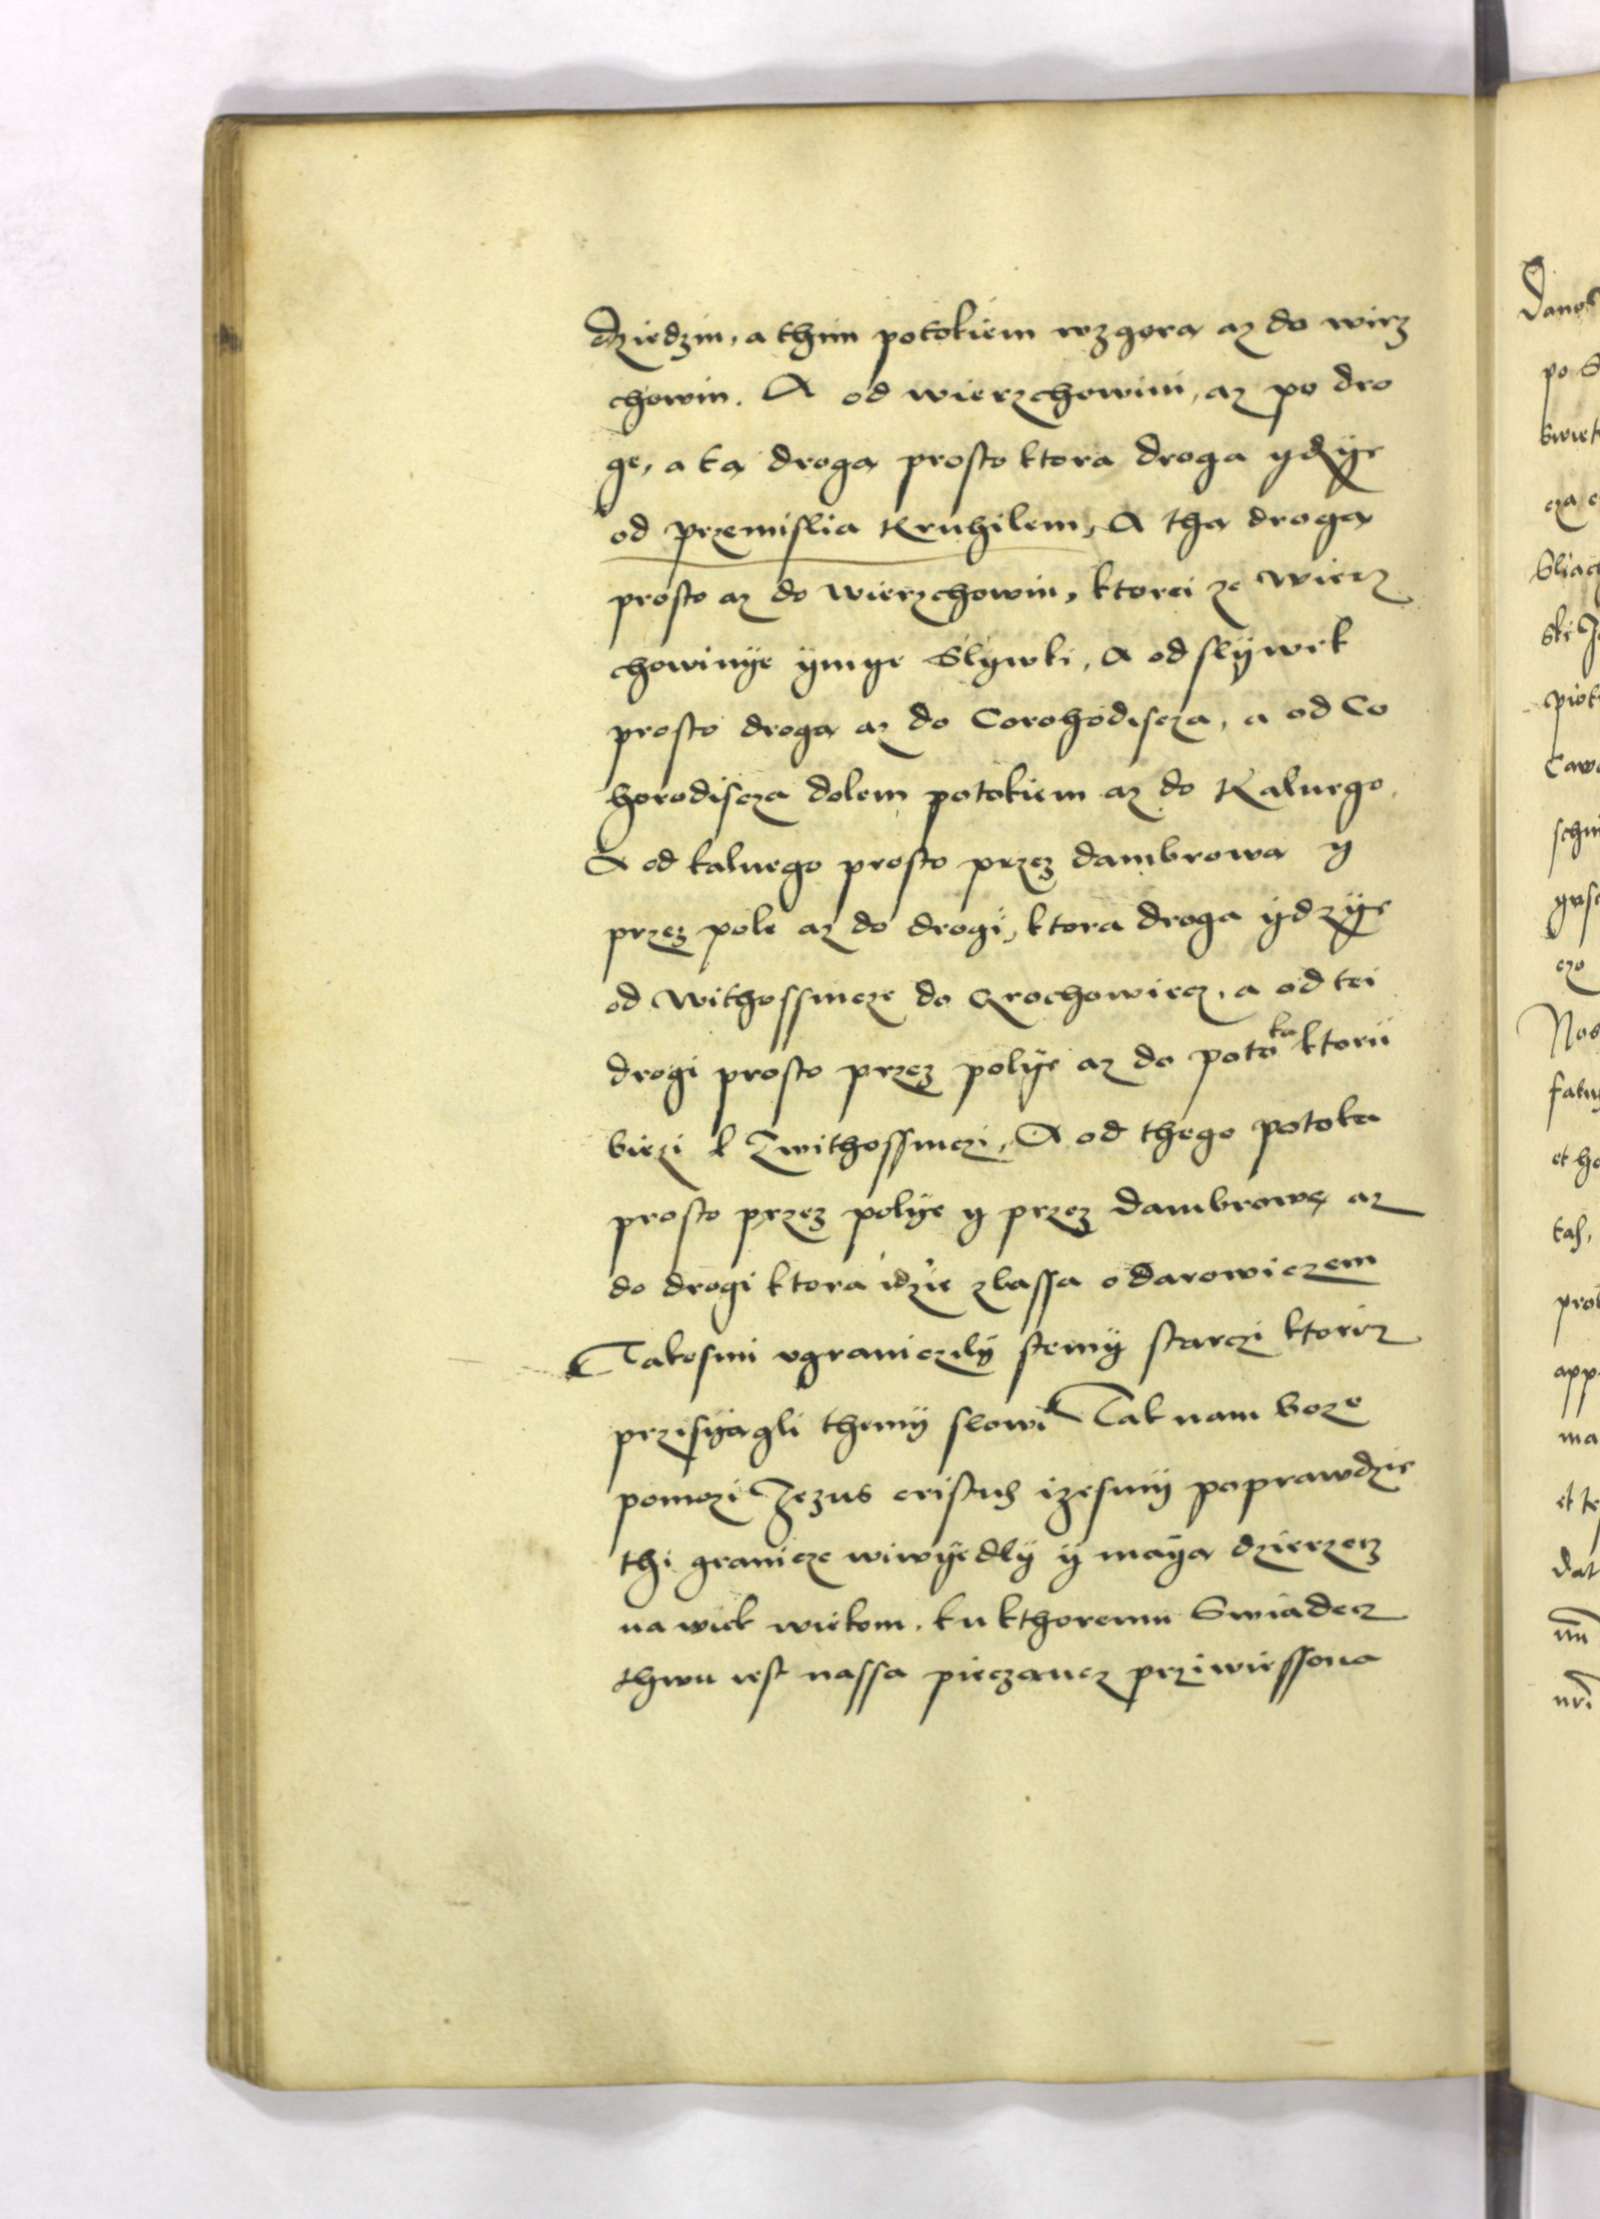 dziedzin, a thim potokiem wzgora az do wirz
chowin. A od wierzchowini, az po dro
ge, a ta droga prosto ktora droga ydzÿe
od przemislia Kruhilem, A tha droga
prosto az do wierzchowin, ktorei ze wierz
chowinÿe ÿmÿe Slÿwki, A od slÿwek
prosto droga az do Corohodiscza, a od Co
horodiscza dolem potokiem az do Kaluego.
A od kaluego prosto przez dambrowa y
przez pole az do drogi, ktora droga ÿdzÿe
od withossincze do Grochowiecz, a od tei
drogi prosto przez polÿe az do potoka ktorii
biezi k zwithossinczi, A od thego potoka
prosto przez polÿe y przez dambrowę az
do drogi ktora idzie zlassa o darowiczem
Takesmi vgraniczilÿ stemÿ starczi ktorirz
przisÿagli themÿ slowi Tak nam boze
pomozi Jezus cristus izesmÿ poprawdzie
thi granicze wiwÿedlÿ ÿ maÿa dzierzecz
na wiek wiekom. ku kthoremu Swiadecz
thwu iest nassa pieczancz prziwiessona
Dano
po S
Swiet
cza
Sliach
ski J
piot
Cawa
schin
gosc
czo
Nos
fatu
et ho
tas,
prob
app
ma
et te
dat
nri